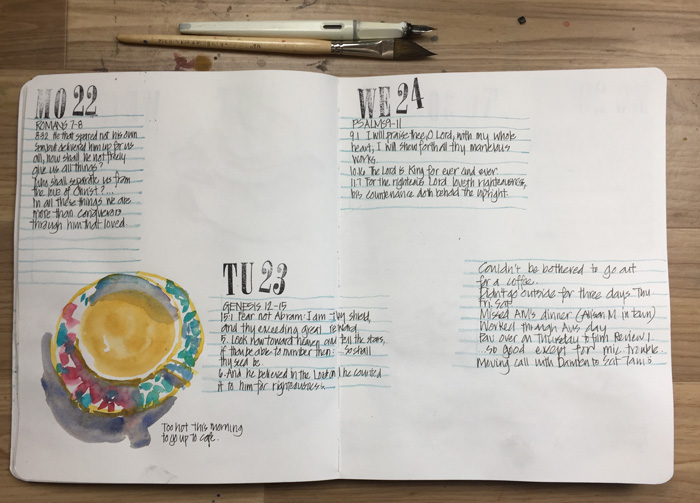 MO 22
ROMANS 7-8
8:32 He that spared not his own
Son but delivered him up for us
all, how shall he not freely
give us all things?
Who shall separate us from
the love of Christ?...
In all these things we are
more than conquerors
through him that loved.
TU 23
GENESIS 12-15
15:1 Fear not Abram: I am thy shield,
and thy exceeding great reward
5. Look now toward heaven, and tell the stars,
if thou be able to number them: So shall
thy seed be.
6. And he believed in the Lord and he counted
it to him for righteousness.
Too hot this morning
to go up to cafe.
WE 24
PSALMS 9-11
9:1 I will praise thee O Lord, with my whole
heart; I will shew forth all thy marvelous
works.
10:16 The Lord is King for ever and ever
11:7 For the righteous Lord loveth righteousness,
his countenance doth behold the upright.
Couldn't be bothered to go out
for a coffee.
Didn't go outside for three days. Thu
Fri, Sat
Missed AM's dinner (Alison M in town)
Worked through Aus day
Pav over on Thursday to film Review 1
... so good except for mic trouble.
Moving call with Damien to Sat 7am